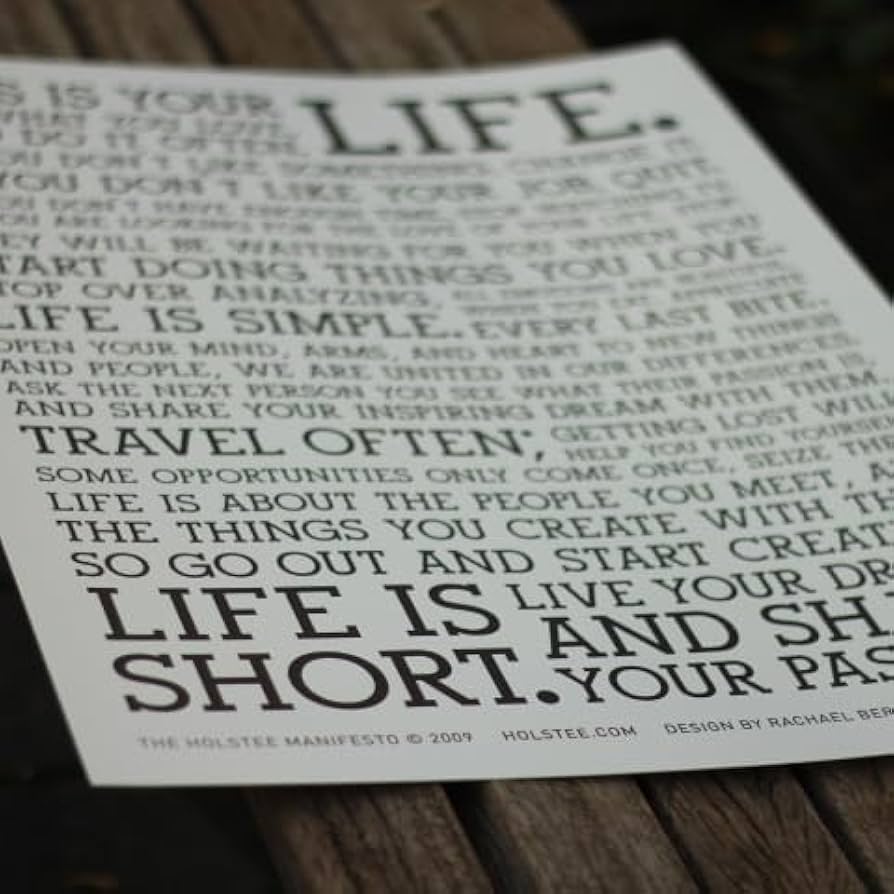 S IS YOUR LIFE.
WHAT YOU LOVE,
DO IT OFTEN.
YOU DON'T LIKE SOMETHING, CHANGE IT.
YOU DON'T LIKE YOUR JOB, QUIT.
OU DON'T HAVE ENOUGH TIME, STOP WATCHING TV.
OU ARE LOOKING FOR THE LOVE OF YOUR LIFE, STOP;
EY WILL BE WAITING FOR YOU WHEN YOU
TART DOING THINGS YOU LOVE.
TOP OVER ANALYZING,
LIFE IS SIMPLE. EVERY LAST BITE.
OPEN YOUR MIND, ARMS, AND HEART TO NEW THINGS
AND PEOPLE, WE ARE UNITED IN OUR DIFFERENCES.
ASK THE NEXT PERSON YOU SEE WHAT THEIR PASSION IS,
AND SHARE YOUR INSPIRING DREAM WITH THEM.
TRAVEL OFTEN; GETTING LOST WILL
HELP YOU FIND YOURSE
SOME OPPORTUNITIES ONLY COME ONCE, SEIZE THE
LIFE IS ABOUT THE PEOPLE YOU MEET, A
THE THINGS YOU CREATE WITH TH
SO GO OUT AND START CREAT
LIFE IS SHORT.
LIVE YOUR DR
AND SH
YOUR PAS
THE HOLSTEE MANIFESTO © 2009 HOLSTEE.COM DESIGN BY RACHAEL BER